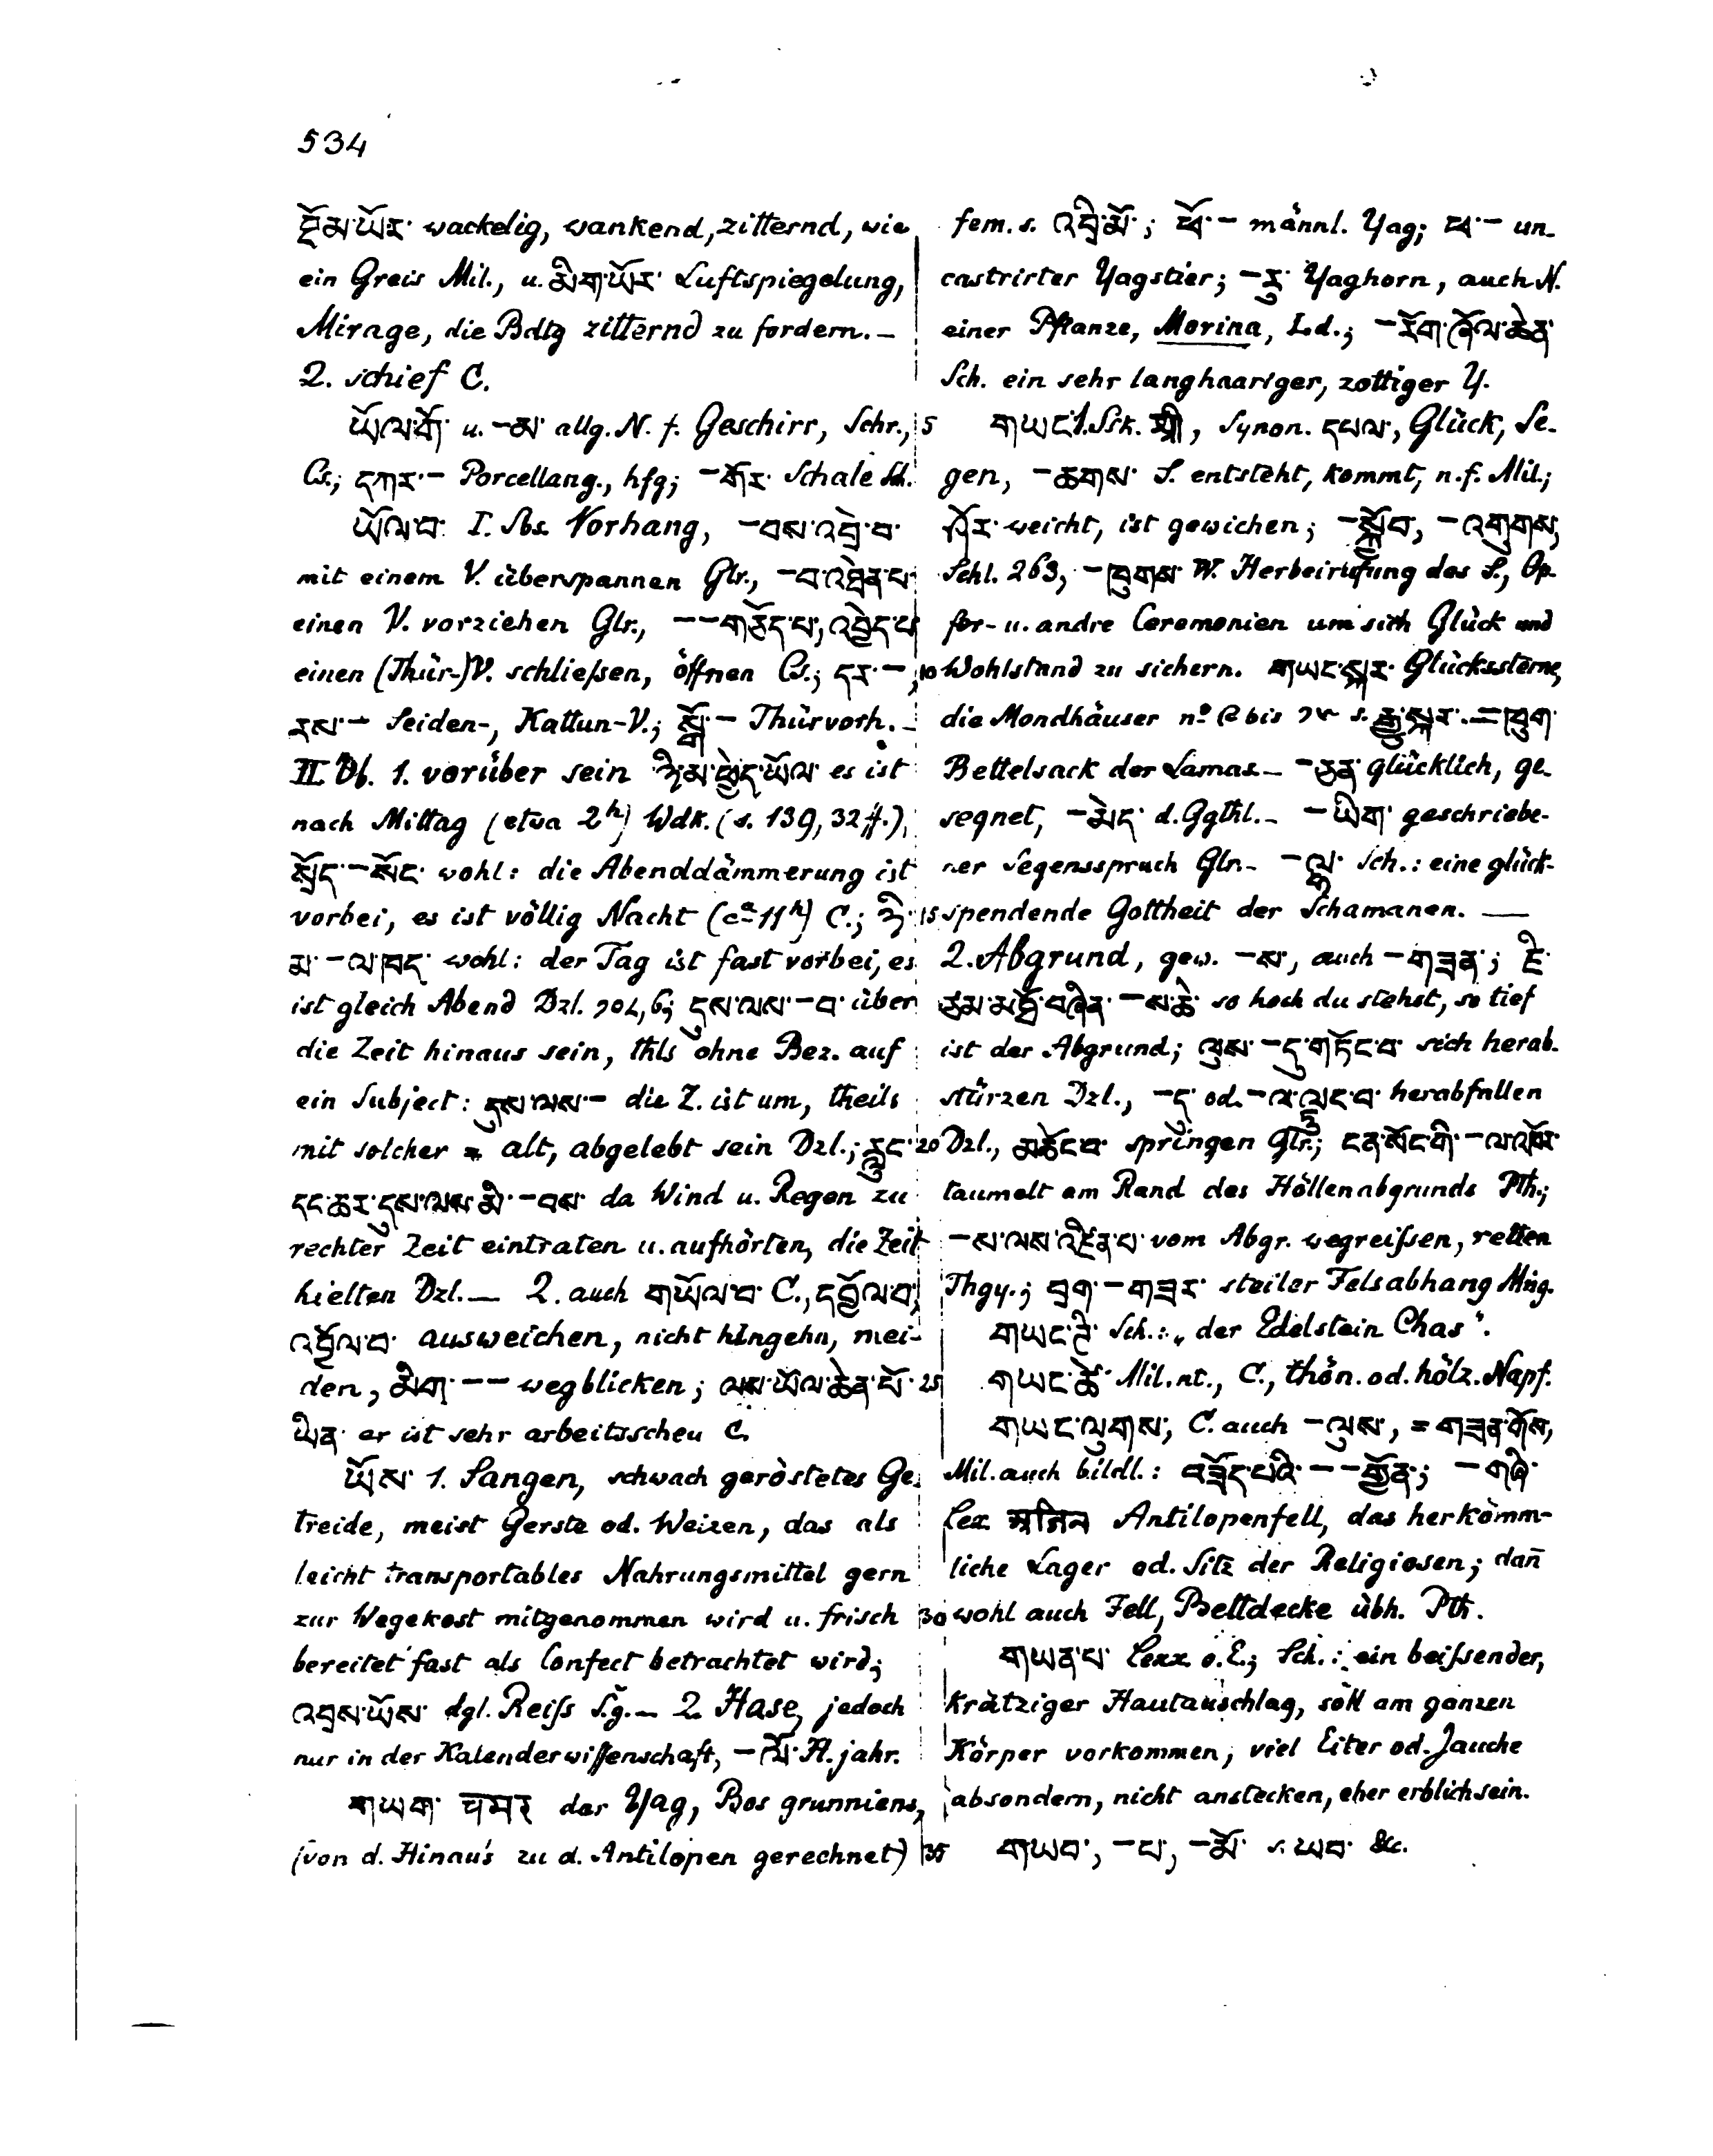 534
ཇོམ་ཡོར་ wackelig, wankend, zitternd, wie
ein Greis Mil., u. མིག་ཡོར་ Luftspiegelung,
Mirage, die Bdtg zitternd zu fordern. —
2. schief C.
ཡོལ་གོ་ u. –མ་ allg. N. f. Geschirr, Schr.,
Cs.; དཀར་– Porcellang., hfg; –གོར་ Schale Sch.
ཡོལ་བ་ I. Sbs. Vorhang, –བས་འབྲེ་བ་
mit einem V. überspannen Glr., –བ་འཐེན་པ་
einen V. vorziehen Glr., ––གཅོད་པ་, འབྱེད་པ་
einen (Thür-)V. schließen, öffnen Cs.; དར་–,
རས་– Seiden-, Kattun-V.; སྒོ་– Thürvorh. –
II. Vb. 1. vorüber sein ཉི་མ་ཕྱེད་ཡོལ་ es ist
nach Mittag (etwa 2h) Wdk. (s. 139, 32ff.),
སྲོད་–སོང་ wohl: die Abenddämmerung ist
vorbei, es ist völlig Nacht (ca 11h) C.; ཉི་
མ་–ལ་ཁད་ wohl: der Tag ist fast vorbei, es
ist gleich Abend Dzl. ༢༠༤, 6; དུས་ལས་–བ་ über
die Zeit hinaus sein, thls ohne Bez. auf
ein Subject: དུས་ལས་– die Z. ist um, theils
mit solcher = alt, abgelebt sein Dzl.; རླུང་
དང་ཆར་དུས་ལས་མི་–བས་ da Wind u. Regen zu
rechter Zeit eintraten u. aufhörten, die Zeit
hielten Dzl. — 2. auch གཡོལ་བ་ C., དབྱོལ་བ་,
འབྱོལ་བ་ ausweichen, nicht hingehn, mei-
den, མིག་–– wegblicken; ལས་ཡོལ་ཆེན་པོ་
ཡིན་ er ist sehr arbeitsscheu C.
ཡོས་ 1. Sangen, schwach geröstetes Ge-
treide, meist Gerste od. Weizen, das als
leicht transportables Nahrungsmittel gern
zur Wegekost mitgenommen wird u. frisch
bereitet fast als Confect betrachtet wird;
འབྲས་ཡོས་ dgl. Reiss S.g. — 2. Hase, jedoch
nur in der Kalenderwissenschaft, –ལོ་ H. jahr.
གཡག་ चमर der Yag, Bos grunniens,
(von d. Hinau's zu d. Antilopen gerechnet)
fem. s. འབྲི་མོ་; ཕོ་– männl. Yag; ཕ་– un-
castrirter Yagstier; –རུ་ Yaghorn, auch N.
einer Pflanze, Morina, Ld.; –རོག་ཞོལ་ཆེན་
Sch. ein sehr langhaariger, zottiger Y.
5 གཡང་ 1. Ssk. श्री, Synon. དཔལ་, Glück, Se-
gen, –ཆགས་ S. entsteht, kommt, n. f. Mil.;
ཤོར་ weicht, ist gewichen; –སྐྱོབ་, –འགུགས་,
Schl. 263, –ཁུགས་ W. Herbeirufung des S., Op-
fer- u. andre Ceremonien um sich Glück und
10 Wohlstand zu sichern. གཡང་སྐར་ Glückssterne,
die Mondhäuser no ༨ bis s. རྒྱུ་སྐར་. — –ཁུག་
Bettelsack der Lamas — –ཅན་ glücklich, ge-
segnet, –མེད་ d. Ggthl. – –ཡིག་ geschriebe-
ner Segensspruch Gln. – –ལྷ་ Sch.: eine glück-
15 spendende Gottheit der Schamanen. —
2. Abgrund, gew. –ས་, auch –གཟན་; ཇི་
ཙམ་མཐོ་བཞིན་–ས་ཆེ་ so hoch du stehst, so tief
ist der Abgrund; ལུས་–དུ་གཏོང་བ་ sich herab-
stürzen Dzl., –དུ་ od. –ལ་ལྷུང་བ་ herabfallen
20 Dzl., མཆོང་བ་ springen Glr.; ངན་སོང་གི་–ལ་འཁོར་
taumelt am Rand des Höllenabgrunds Pth.;
–ས་ལས་འཛིན་པ་ vom Abgr. wegreißen, retten
Thgy.; བྲག་–གཟར་ steiler Felsabhang Mng.
གཡང་ཊི་ Sch.: „der Edelstein Chas".
25 གཡང་ཚེ་ Mil. nt., C., thön. od. hölz. Napf.
གཡང་ལུགས་, C. auch –ལུས་, = གཟན་གོས་,
Mil. auch bildl.: བཟོད་པའི་––གྱོན་; –གཞི་
Lex. अजिन Antilopenfell, das herkömm-
liche Lager od. Sitz der Religiosen; dañ
30 wohl auch Fell, Bettdecke übh. Pth.
གཡན་པ་ Lexx. o. E.; Sch.: ein beißender,
krätziger Hautauschlag, soll am ganzen
Körper vorkommen, viel Eiter od. Jauche
absondern, nicht anstecken, eher erblich sein.
35 གཡབ་, –པ་, –མོ་ s. ཡབ་ &c.